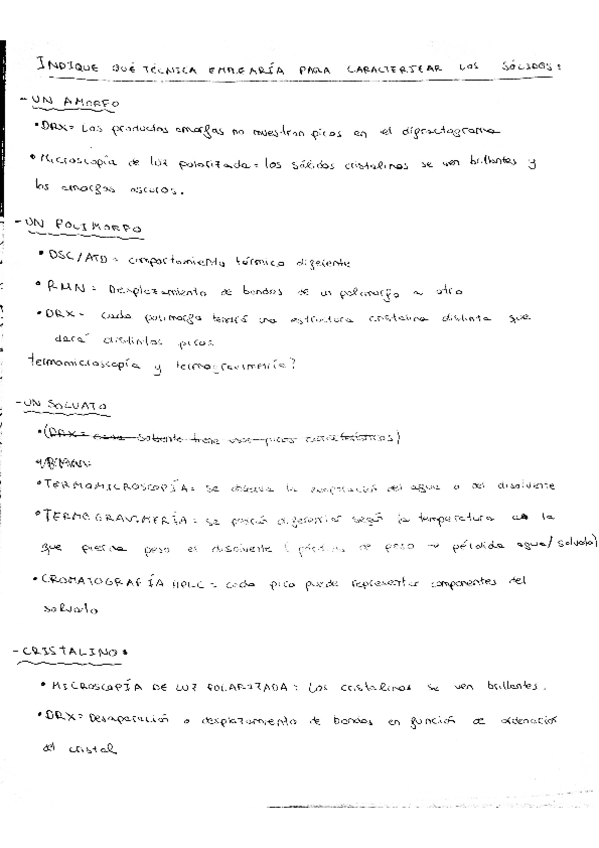 INDIQUE QUÉ TÉCNICA EMPLEARÍA PARA CARACTERIZAR LOS SÓLIDOS:
- UN AMORFO
• DRX = Los productos amorfos no muestran picos en el difractograma
• Microscopía de luz polarizada = los sólidos cristalinos se ven brillantes y
los amorfos oscuros.
- UN POLIMORFO
• DSC/ATD = comportamiento térmico diferente
• RMN = Desplazamiento de bandas de un polimorfo a otro
• DRX = cada polimorfo tendrá una estructura cristalina distinta que
dará distintos picos
termomicroscopía y termogravimetría?
- UN SOLVATO
• (DRX = cada solvente tiene unos picos característicos)
• TERMOMICROSCOPÍA = se observa la evaporación del agua o del disolvente
• TERMOGRAVIMERÍA = se podrá diferenciar según la temperatura a la
que pierda peso el disolvente (pérdida de peso ~ pérdida agua/solvato)
• CROMATOGRAFÍA HPLC = cada pico puede representar componentes del
solvato
- CRISTALINO •
• MICROSCOPÍA DE LUZ POLARIZADA = Los cristalinos se ven brillantes.
• DRX = Desaparición o desplazamiento de bandas en función de ordenación
del cristal